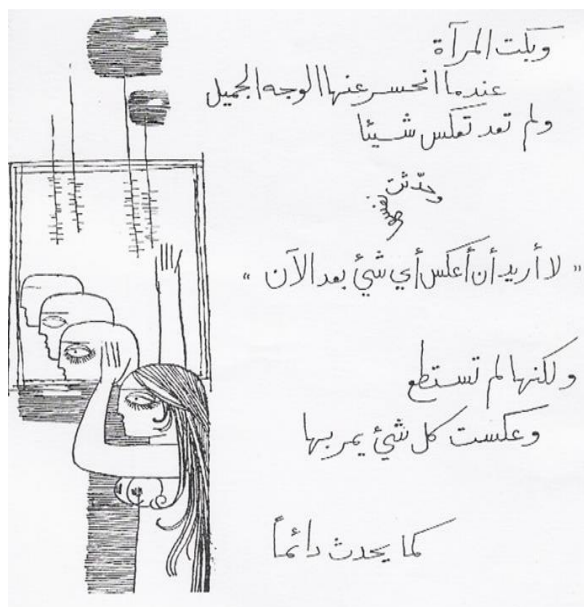 وبكت المرآة
عندما انحسر عنها الوجه الجميل
ولم تعد تعكس شيئا
وحدّثت نفسها
" لا أريد أن أعكس أي شيئ بعد الآن "
ولكنها لم تستطع
وعكست كل شيئ يمر بها
كما يحدث دائماً